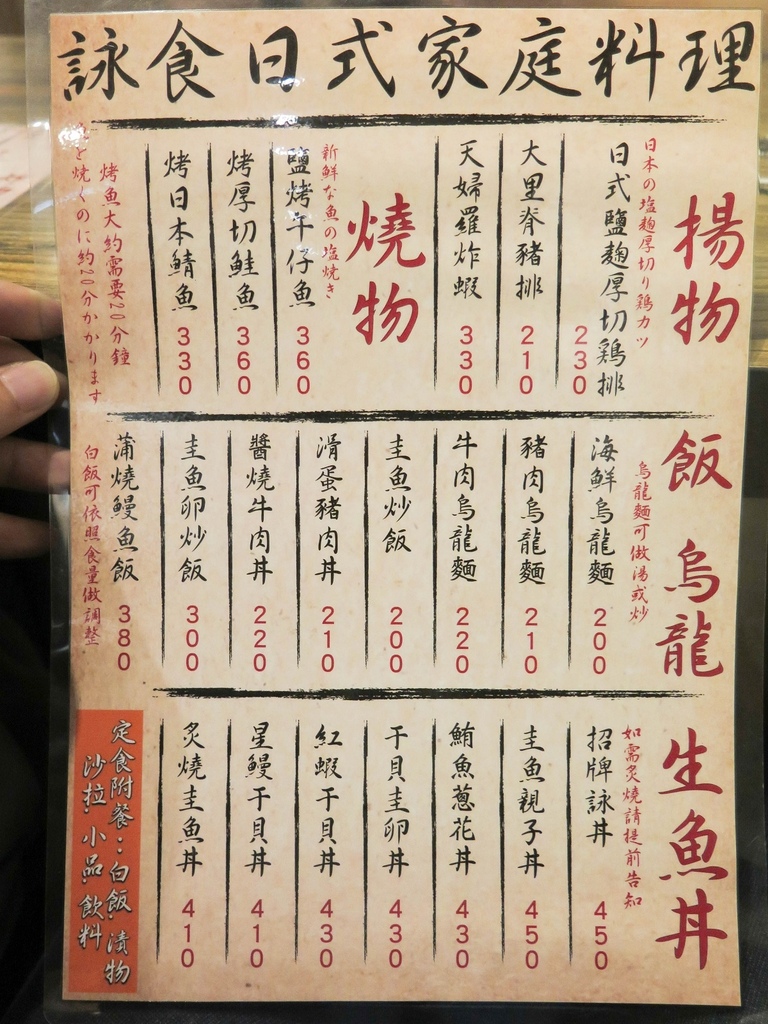 詠食日式家庭料理
揚物
日本の塩麹厚切り鶏カツ
日式鹽麴厚切鶏排 230
大里脊豬排 210
天婦羅炸蝦 330
燒物
新鮮な魚の塩焼き
鹽烤午仔魚 360
烤厚切鮭魚 360
烤日本鯖魚 330
烤魚大約需要20分鐘
を焼くのに約20分かかります
飯 烏龍
烏龍麵可做湯或炒
海鮮烏龍麵 200
豬肉烏龍麵 210
牛肉烏龍麵 220
圭魚炒飯 200
滑蛋豬肉丼 210
醬燒牛肉丼 220
圭魚卵炒飯 300
蒲燒鰻魚飯 380
白飯可依照食量做調整
生魚丼
如需炙燒請提前告知
招牌詠丼 450
圭魚親子丼 450
鮪魚蔥花丼 430
干貝圭卵丼 430
紅蝦干貝丼 430
星鰻干貝丼 410
炙燒圭魚丼 410
定食附餐：白飯 漬物
沙拉 小品 飲料